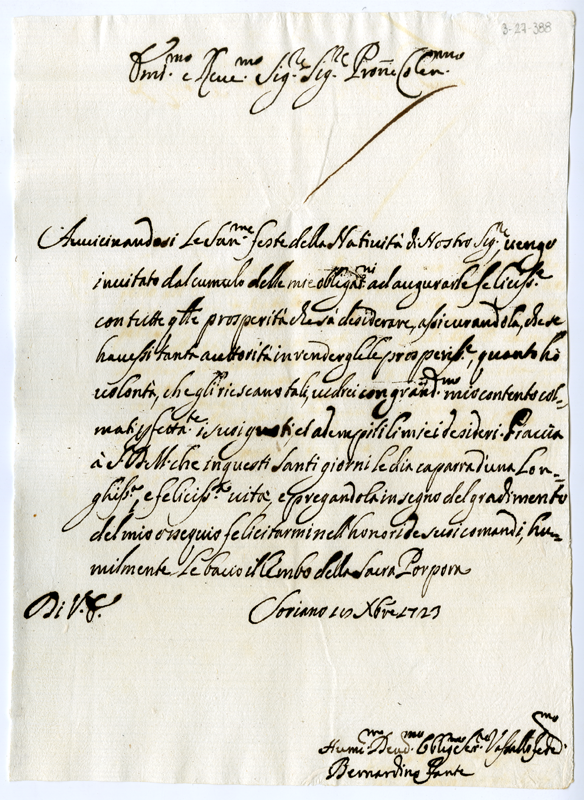 3-27-388
Em.mo e Reve.mo Sig.re Sig.re Pron̄e Colen.mo
Avvicinandosi le San.me feste della Natività di Nostro Sig.re vengo
invitato dal cumulo delle mie obligat.ni ad augurarle felicis.e
con tutte q̄lle prosperità che sà desiderare, assicurandola, che se
havessi tanta auttorità in rendergliele prosperis.e, quanto hò
volontà, che gli riescano tali, vedrei con grand.mo mio contento col-
mati perfetta.te i suoi gusti et adempiti li miei desideri. Piaccia
à S. D. M. che in questi Santi giorni le dia caparra d'una Lon-
ghis.a, e felicis.a vita, e pregandola in segno del gradimento
del mio ossequio felicitarmi nell'honori de suoi comandi, hu-
milmente le bacio il lembo della Sacra Porpora
Di V. E. Soriano Xbre 1723
Humi.mo Devo.mo Oblig.mo Ser.re Vassallo fede.mo
Bernardino Fante